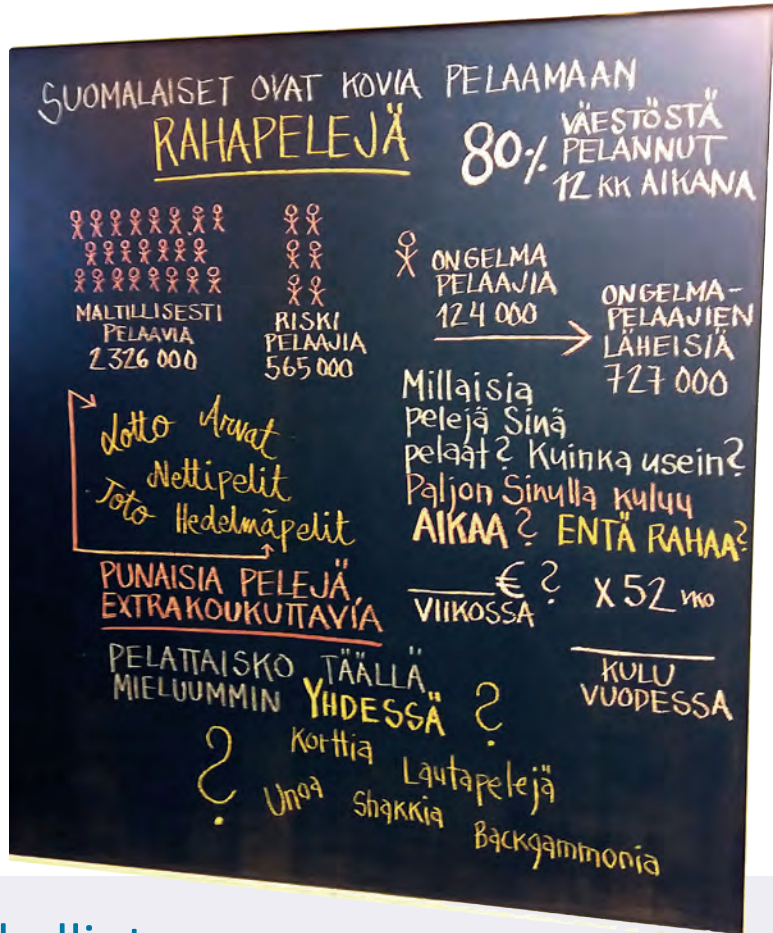 SUOMALAISET OVAT KOVIA PELAAMAAN
RAHAPELEJÄ
80%
VÄESTÖSTÄ
PELANNUT
12 KK AIKANA
MALTILLISESTI
PELAAVIA
2326 000
RISKI
PELAAJIA
565 000
ONGELMA
PELAAJIA
124 000
ONGELMA-
PELAAJIEN
LÄHEISIÄ
727 000
Lotto Arvat
Nettipelit
Toto Hedelmäpelit
PUNAISIA PELEJÄ,
EXTRAKOUKUTTAVIA
Millaisia
pelejä Sinä
pelaat? Kuinka usein?
Paljon Sinulla kuluu
AIKAA? ENTÄ RAHAA?
€? X 52 VKO
VIIKOSSA
KULU
VUODESSA
PELATTAISKO TÄÄLLÄ
MIELUUMMIN YHDESSÄ?
? Korttia Lautapelejä
Unoa Shakkia Backgammonia